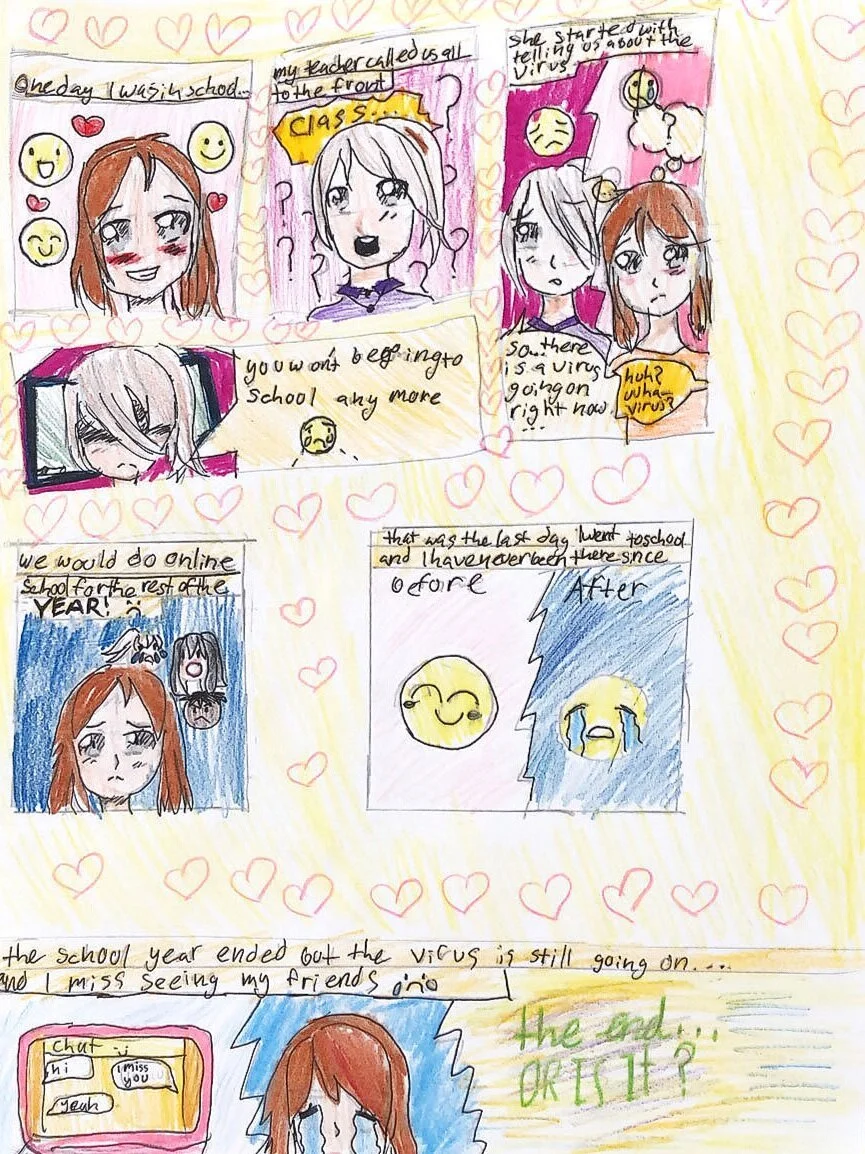 One day I was in school...
my teacher called us all
to the front
Class...
she started with
telling us about the
virus
so...there
is a virus
going on
right now
...
huh?
wha—
virus?
you won't be going to
school any more
we would do online
School for the rest of the
YEAR! :(
that was the last day I went to school
and I have never been there since
Before
After
the school year ended but the virus is still going on....
and I miss seeing my friends
chat :)
hi
I miss
you
yeah
the end...
OR IS IT?